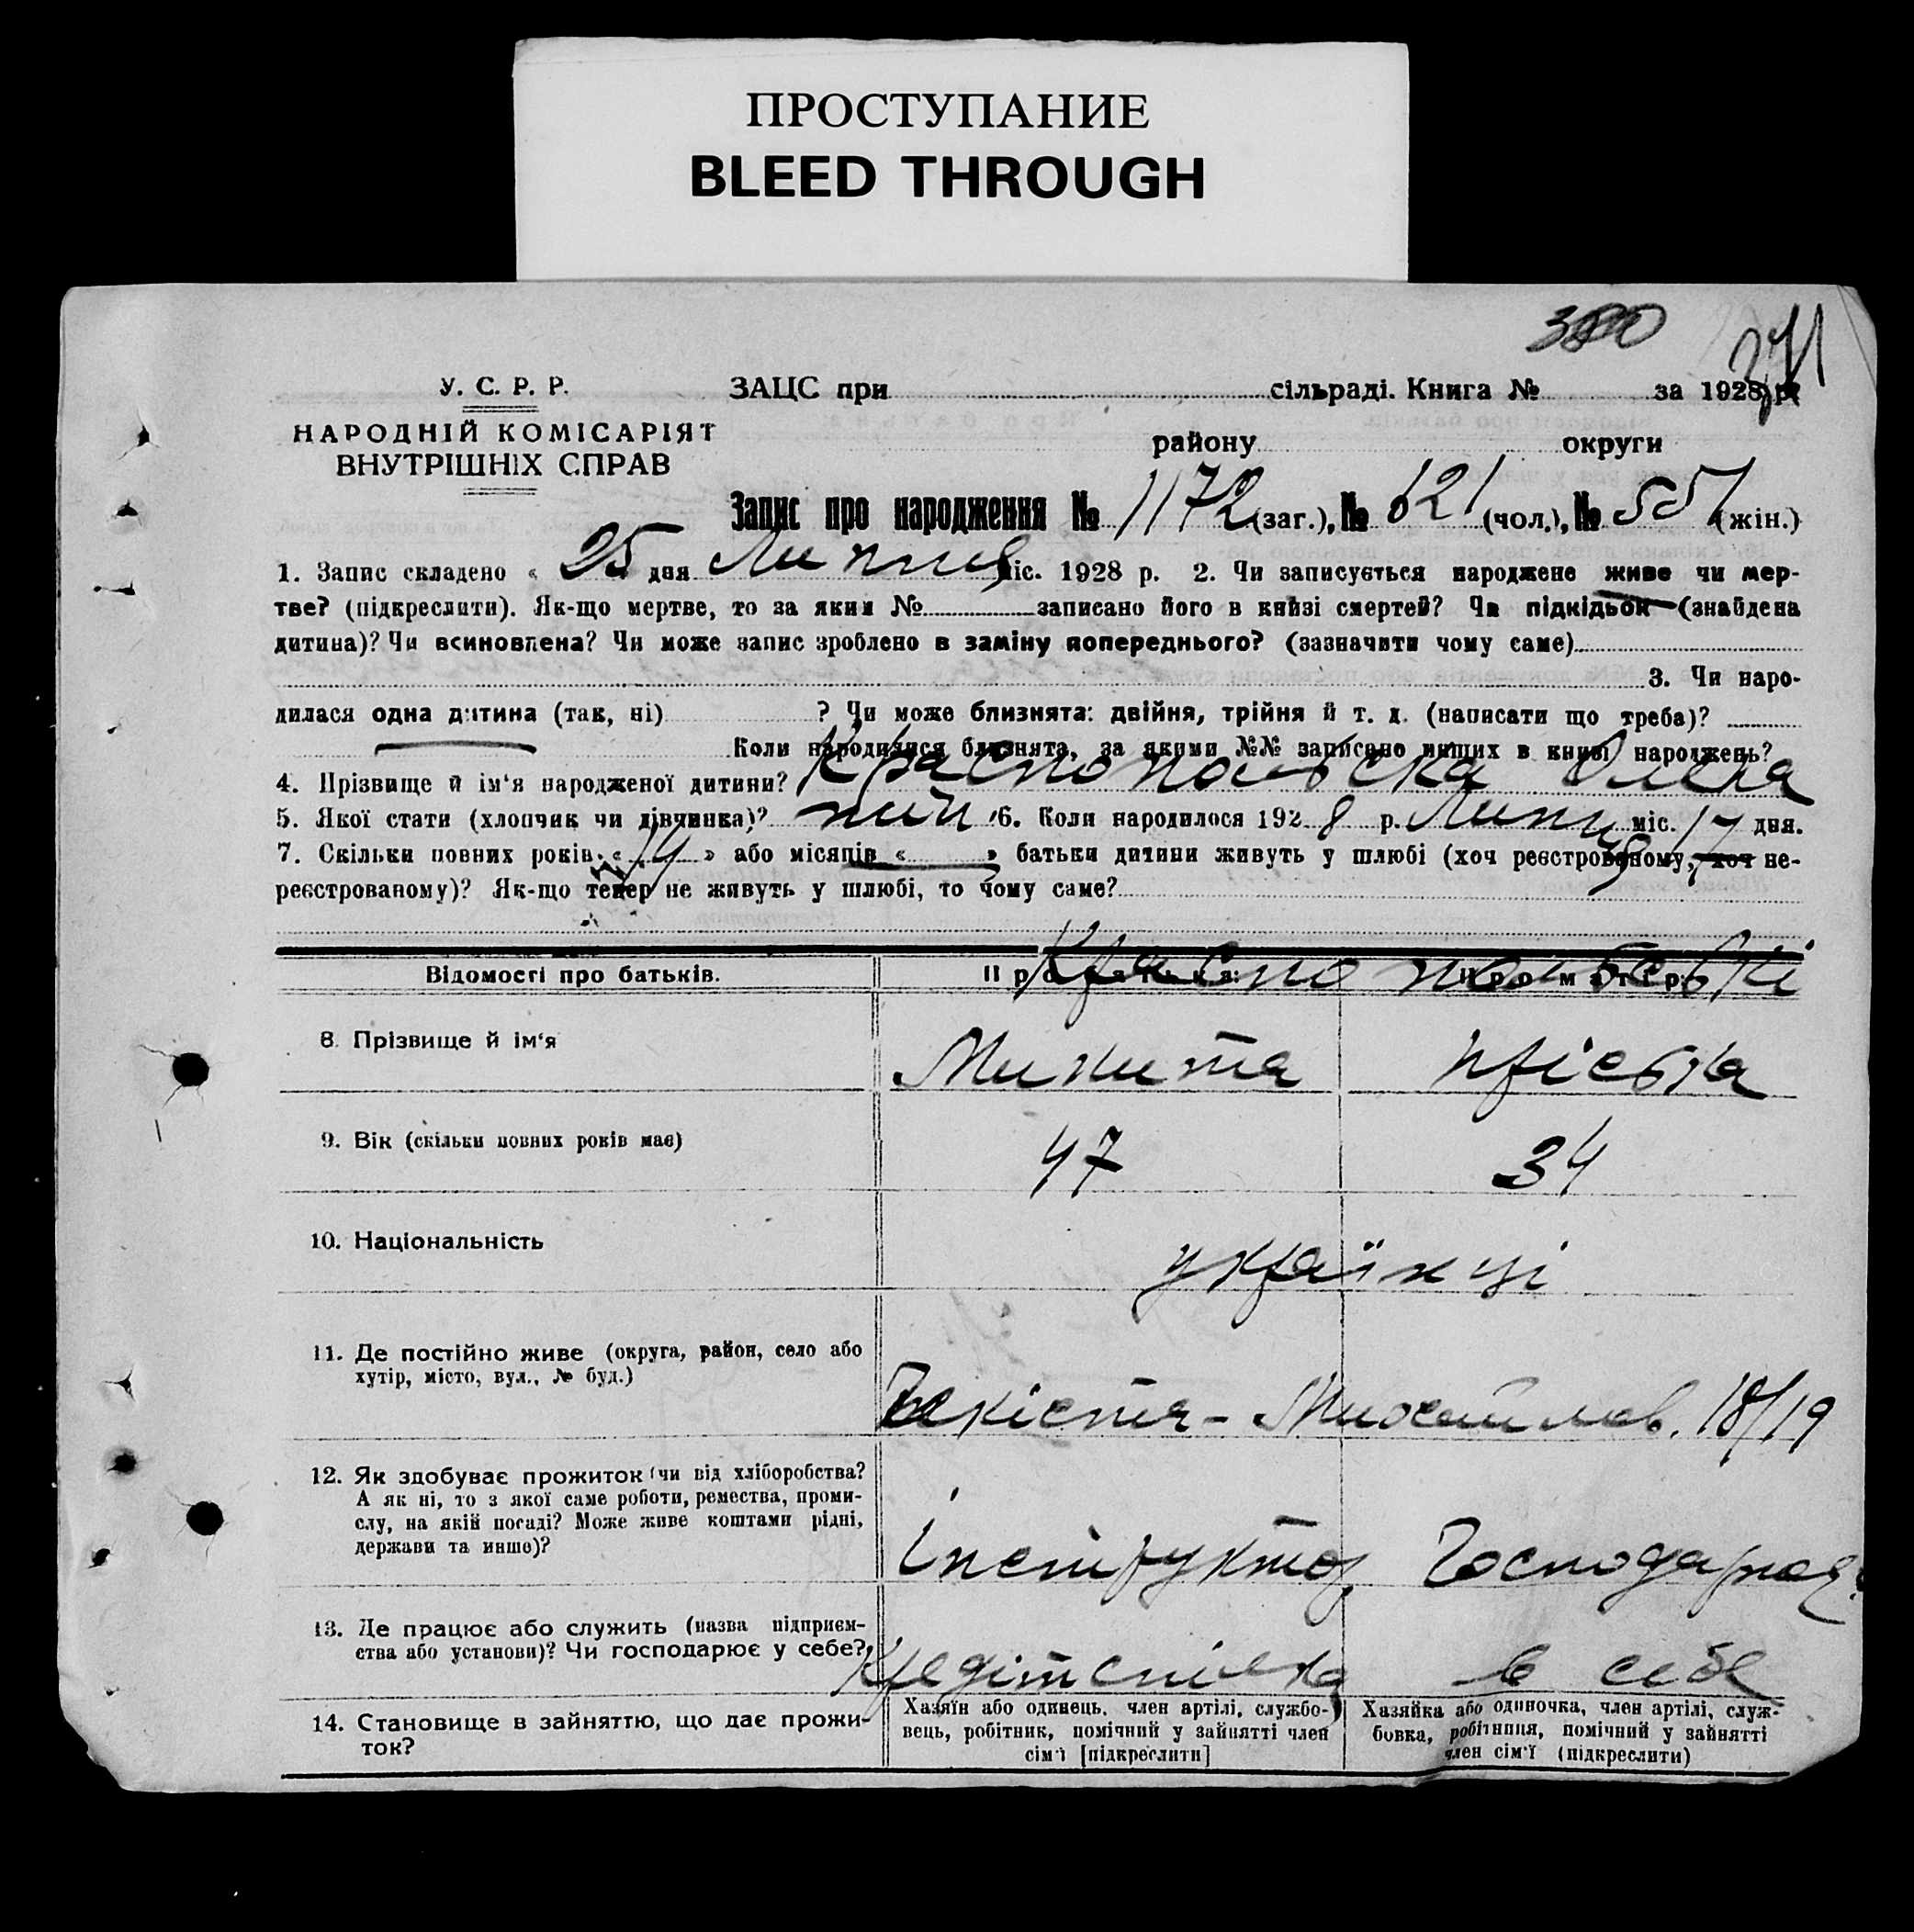 ПРОСТУПАНИЕ
BLEED THROUGH
380
271
У. С. Р. Р.
НАРОДНІЙ КОМІСАРІЯТ
ВНУТРІШНІХ СПРАВ
ЗАЦС при сільраді. Книга № за 1928 р.
району округи
Запис про народження № 1172 (заг.), № 621 (чол.), № 551 (жін.)
1. Запис складено « 25 дня Липня міс. 1928 р. 2. Чи записується народжене живе чи мер-
тве? (підкреслити). Як-що мертве, то за яким № записано його в книзі смертей? Чи підкідьок (знайдена
дитина)? Чи всиновлена? Чи може запис зроблено в заміну попереднього? (зазначити чому саме)
3. Чи наро-
дилася одна дитина (так, ні) ? Чи може близнята: двійня, трійня й т. д. (написати що треба)?
Коли народилися близнята, за якими №№ записано инших в книзі народжень?
4. Прізвище й ім‘я народженої дитини? Краснопольська Олена
5. Якої стати (хлопчик чи дівчинка)? жін 6. Коли народилося 1928 р. Липня міс. 17 дня.
7. Скільки повних років « 14 » або місяців « » батьки дитини живуть у шлюбі (хоч реєстрованому, хоч не-
реєстрованому)? Як-що тепер не живуть у шлюбі, то чому саме?
Краснопольські
Відомості про батьків. Про батька: Про матір:
8. Прізвище й ім‘я Микита Пріська
9. Вік (скільки повних років має) 47 34
10. Національність українці
11. Де постійно живе (округа, район, село або
хутір, місто, вул., № буд.)
Михайлов. 18/19
12. Як здобуває прожиток (чи від хліборобства?
А як ні, то з якої саме роботи, ремества, проми-
слу, на якій посаді? Може живе коштами рідні,
держави та инше)?
Інструктор Господарює
13. Де працює або служить (назва підприєм-
ства або установи)? Чи господарює у себе?
Кредітспілка в себе
14. Становище в зайняттю, що дає прожи-
ток?
Хазяїн або одинець, член артілі, службо-
вець, робітник, помічний у зайнятті член
сім‘ї [підкреслити]
Хазяйка або одиночка, член артілі, служ-
бовка, робітниця, помічний у зайнятті
член сім‘ї (підкреслити)